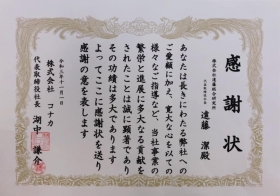 感謝状
株式会社遠藤綜合研究所
遠藤 潔殿
あなたは長きにわたる弊社への
ご愛顧に加え、寛大な心を以ての
様々なご指導など、当社事業の
繁栄と進展に多大なる貢献を
されたことは誠に顕著であり
その功績は多大であります
よってここに感謝状を送り
感謝の意を表します
令和三年十一月一日
株式会社 コナカ
代表取締役社長 湖中 謙介